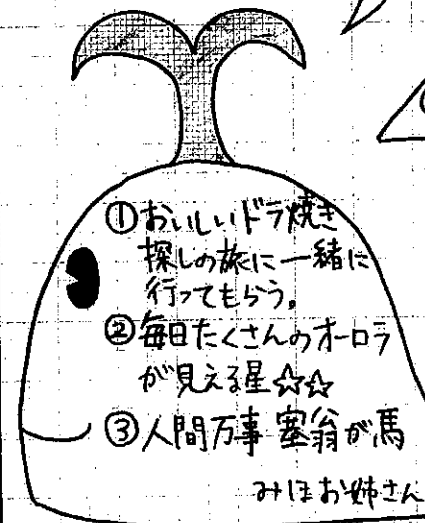 ①おいしいドラ焼き
探しの旅に一緒に
行ってもらう。
②毎日たくさんのオーロラ
が見える星☆☆
③人間万事塞翁が馬
みほお姉さん